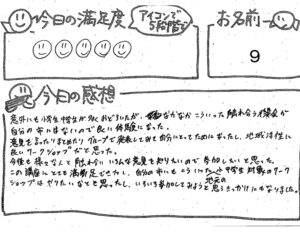 今日の満足度
アイコンで
5段階で
お名前
9
今日の感想
意外にも小学生や学生が多くおどろいたが、なかなかこういった触れ合う機会が
自分の市にはないので良い体験になった。
意見を言ったりまとめたりグループで発表してみて自分にとってためになったし、地域活性に
良いワークショップだと思った。
今後も様々な人と触れ合い、いろんな意見を知りたいので参加したいと思った。
この講座にとても満足できたし、自分の市にもこういった小中学生対象のワーク
地元の
ショップはやりたいなとも思ったし、いろいろ参加してみようと思うきっかけにもなりました。